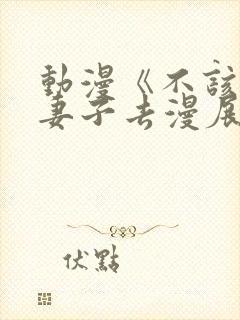 動漫《不該
妻子去漫展
伏點